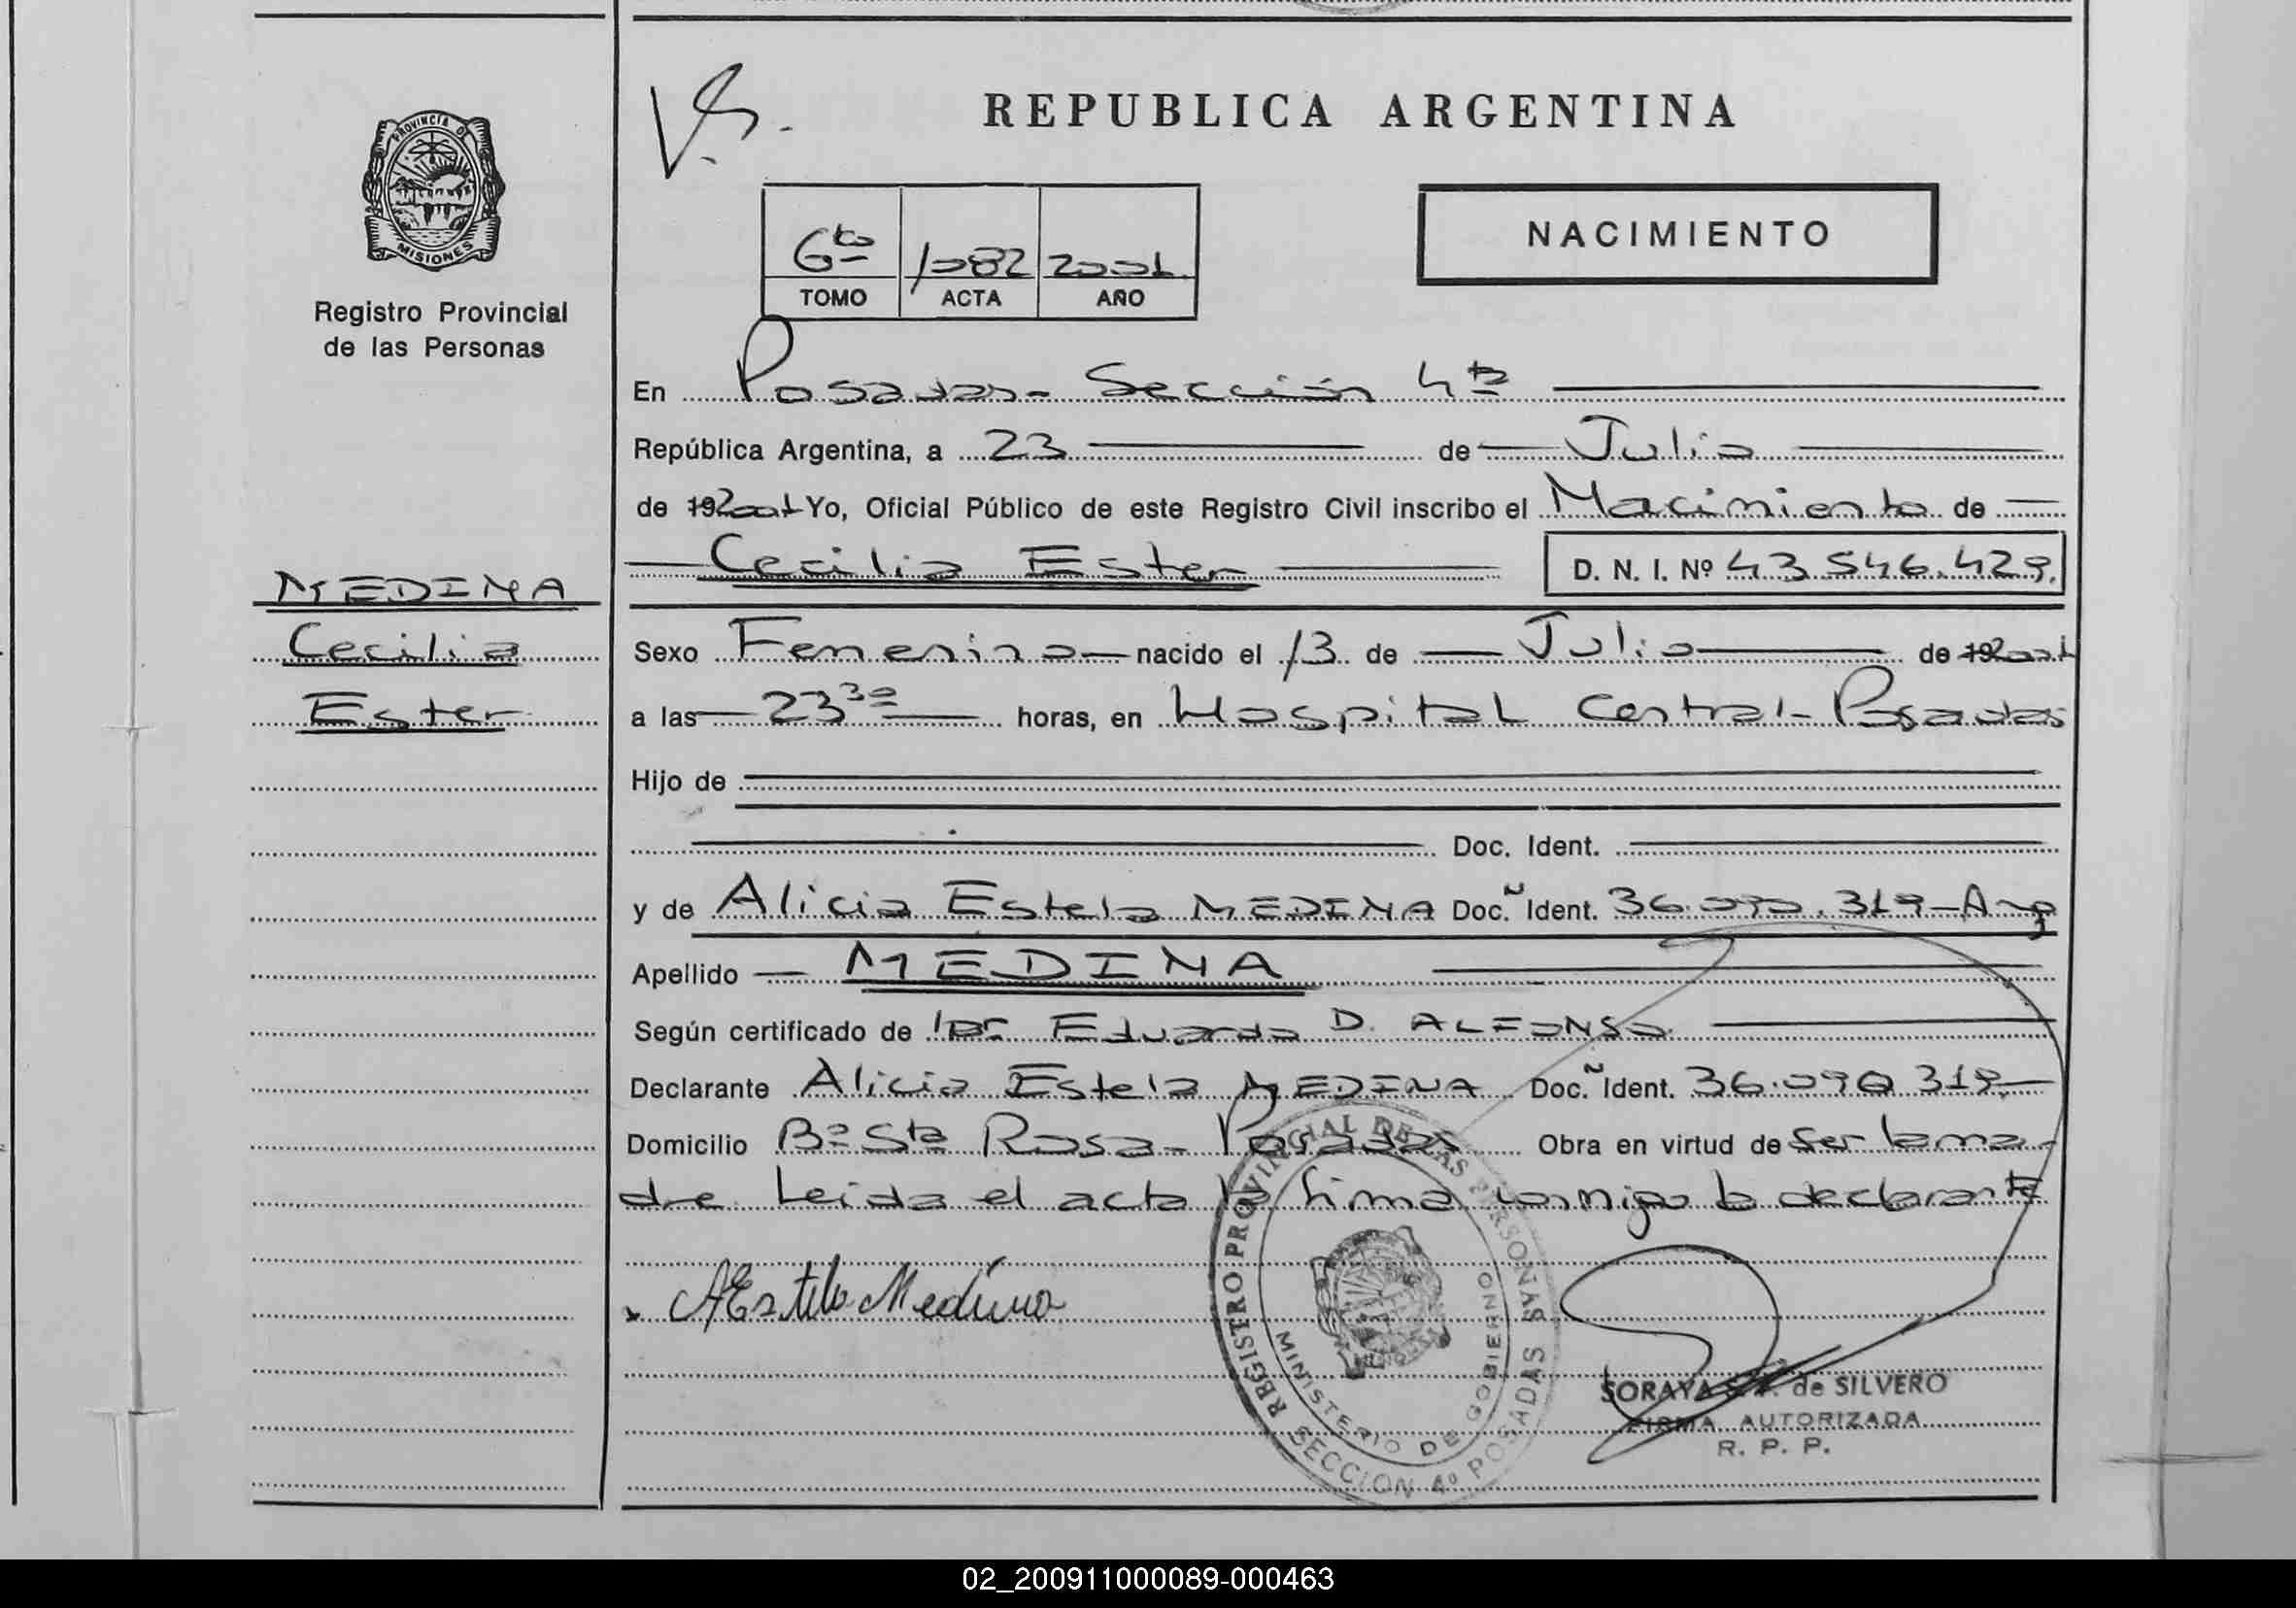 REPUBLICA ARGENTINA
PROVINCIA DE
MISIONES
Registro Provincial
de las Personas
NACIMIENTO
6to 1082 2001
TOMO ACTA AÑO
En Posadas - Sección 4ta
República Argentina, a 23 de Julio
de 192001 Yo, Oficial Público de este Registro Civil inscribo el Nacimiento de
Cecilia Ester D. N. I. Nº 43.546.429.
MEDINA
Cecilia
Ester
Sexo Femenino nacido el 13 de Julio de 192001
a las 23 30 horas, en Hospital Central - Posadas
Hijo de
Doc. Ident.
y de Alicia Estela MEDINA Doc. Ident. 36.090.319 - Arg
Apellido MEDINA
Según certificado de Dr. Eduardo D. ALFONSO
Declarante Alicia Estela MEDINA Doc. Ident. 36.090.319
Domicilio Bº Sta Rosa - Posadas Obra en virtud de ser la ma-
dre. Leida el acta la firma conmigo la declarante
AEstela Medina
REGISTRO PROVINCIAL DE LAS PERSONAS
MINISTERIO DE GOBIERNO
SECCION 4º POSADAS
SORAYA de SILVERO
FIRMA AUTORIZADA
R. P. P.
02_200911000089-000463